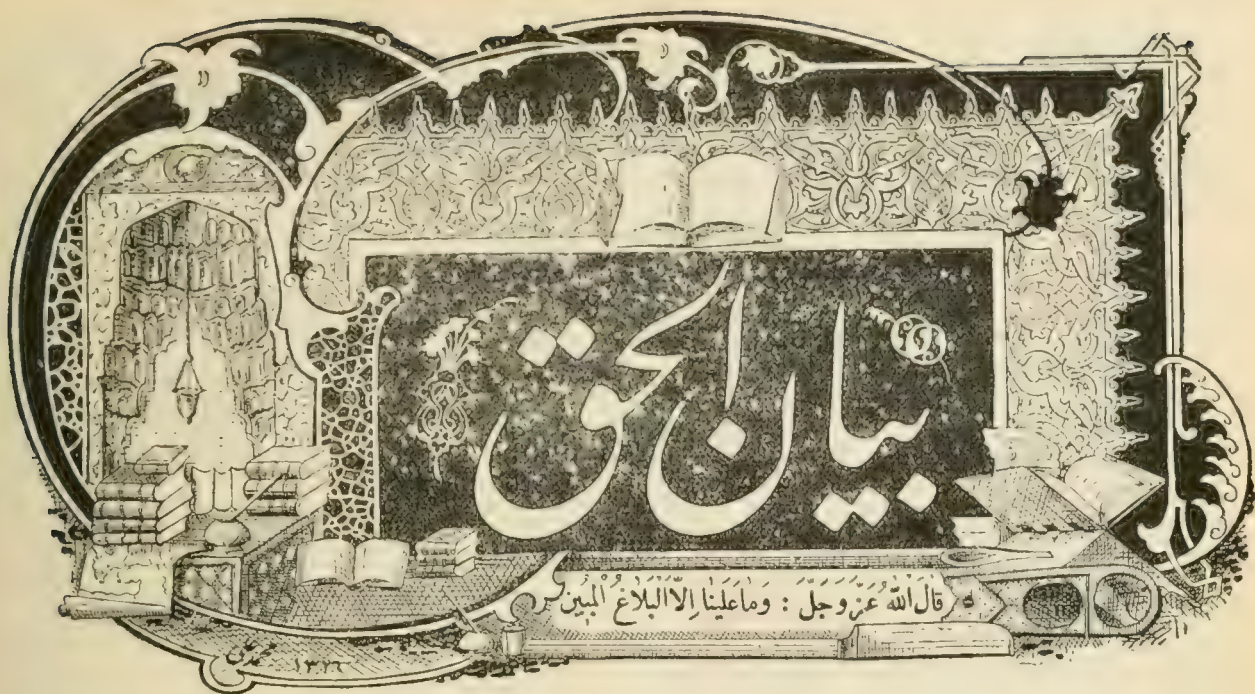 بيان الحق
قال الله عز وجل : وَمَا عَلَيْنَا اِلَّا الْبَلَاغُ الْمُبِين
١٣٢٦